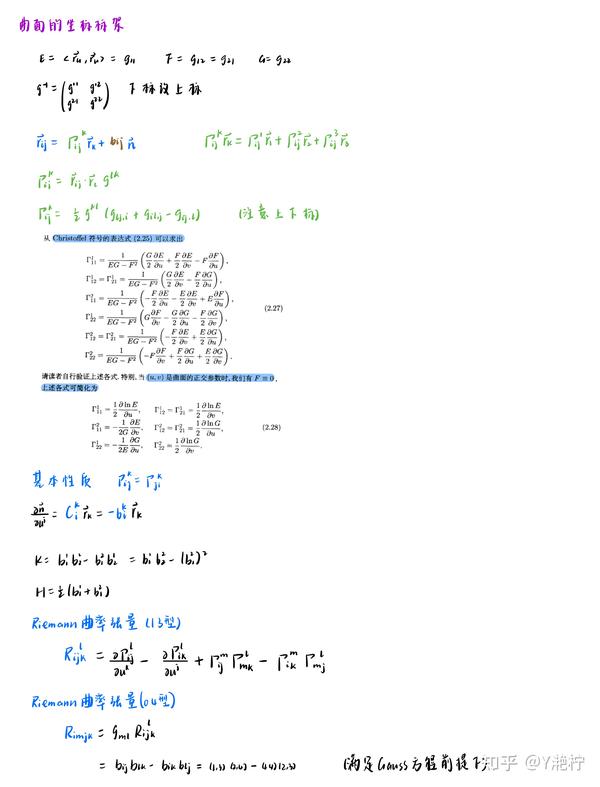 曲面的坐标标架
E = <r⃗ᵤ, r⃗ᵤ> = g₁₁ F = g₁₂ = g₂₁ G = g₂₂
g⁻¹ = (g¹¹ g¹² g²¹ g²²) 下标没上标
r⃗ij = Γᵢⱼᵏ r⃗k + bij n⃗ Γᵢⱼᵏ r⃗k = Γᵢⱼ¹ r⃗₁ + Γᵢⱼ² r⃗₂ + Γᵢⱼ³ r⃗₃
Γᵢⱼᵏ = r⃗ij · r⃗l gˡᵏ
Γᵢⱼᵏ = ½ gᵏˡ (glj,i + gil,j - gij,l) (注意上下标)
从 Christoffel 符号的表达式 (2.25) 可以求出
Γ¹₁₁ = 1/(EG − F²) (G/2 ∂E/∂u + F/2 ∂E/∂v − F ∂F/∂u),
Γ¹₁₂ = Γ¹₂₁ = 1/(EG − F²) (G/2 ∂E/∂v − F/2 ∂G/∂u),
Γ²₁₁ = 1/(EG − F²) (−F/2 ∂E/∂u − E/2 ∂E/∂v + E ∂F/∂u),
(2.27)
Γ¹₂₂ = 1/(EG − F²) (G ∂F/∂v − G/2 ∂G/∂u − F/2 ∂G/∂v),
Γ²₁₂ = Γ²₂₁ = 1/(EG − F²) (−F/2 ∂E/∂v + E/2 ∂G/∂u),
Γ²₂₂ = 1/(EG − F²) (−F ∂F/∂v + F/2 ∂G/∂u + E/2 ∂G/∂v).
请读者自行验证上述各式. 特别, 当 (u, v) 是曲面的正交参数时, 我们有 F ≡ 0,
上述各式可简化为
Γ¹₁₁ = 1/2 ∂ ln E/∂u, Γ¹₁₂ = Γ¹₂₁ = 1/2 ∂ ln E/∂v,
Γ²₁₁ = −1/2G ∂E/∂v, Γ²₁₂ = Γ²₂₁ = 1/2 ∂ ln G/∂u, (2.28)
Γ¹₂₂ = −1/2E ∂G/∂u, Γ²₂₂ = 1/2 ∂ ln G/∂v.
基本性质 Γᵢⱼᵏ = Γⱼᵢᵏ
∂n⃗/∂uⁱ = Cᵢᵏ r⃗k = -bᵢᵏ r⃗k
K = b₁¹b₂² - b₁²b₂¹ = b₁¹b₂² - (b₁²)²
H = ½(b₁¹ + b₂²)
Riemann 曲率张量 (1 3型)
Rᵢⱼₖˡ = ∂Γᵢⱼˡ/∂uᵏ - ∂Γᵢₖˡ/∂uʲ + Γᵢⱼᵐ Γₘₖˡ - Γᵢₖᵐ Γₘⱼˡ
Riemann 曲率张量 (0 4型)
Rimjk = gml Rᵢⱼₖˡ
= bij blk - bik blj = (1,3)(2,4) - (1,4)(2,3) (满足Gauss方程前提下)
知乎 @Y滟柠